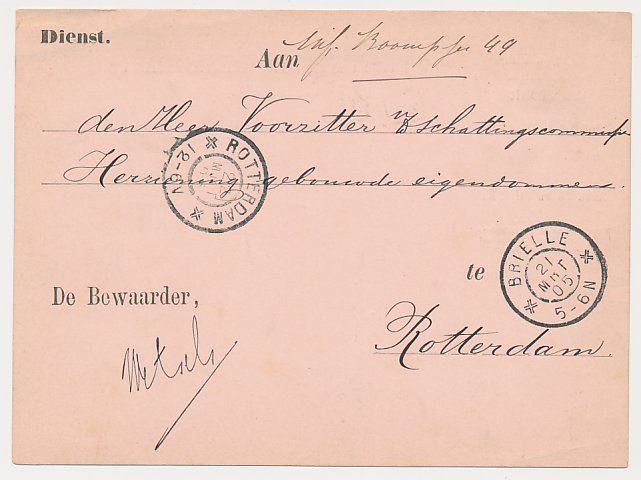 Dienst.
Aan
den Heer Voorzitter v/d Schattingscommissie
Herziening gebouwde eigendommen.
ROTTERDAM 12-6V
BRIELLE 21 MRT 05 5-6N
te
De Bewaarder,
Rotterdam.